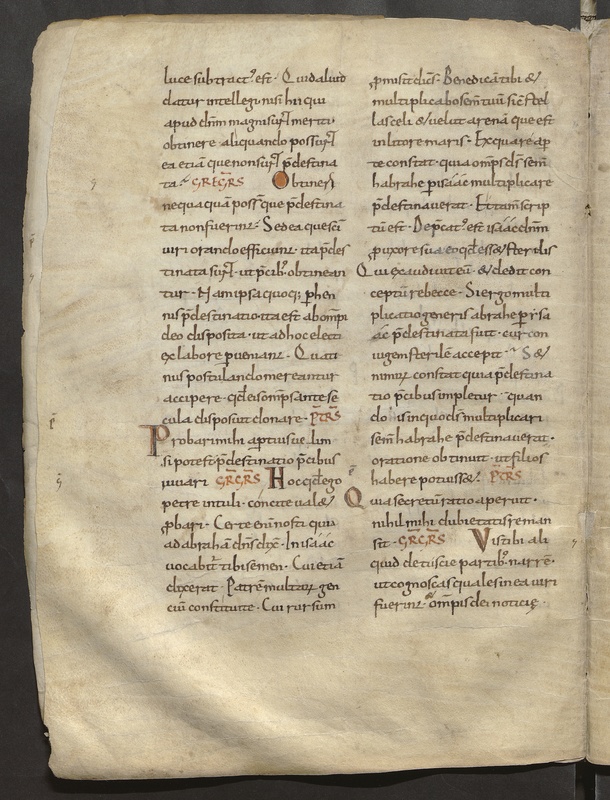 luce subtract' est · Quid aliud
datur intellegi nisi hii qui
apud dn̄m magni sun̄t meriti ·
obtinere aliquando possun̄t
ea etiā que non sun̄t p̄destina
ta · GREGRS Obtineri
nequaquā poss̄ que p̄destina
ta non fuerint · Sed ea que sc̄i
uiri orando efficiunt · ita p̄des
tinata sun̄t · ut p̄cib; obtinean
tur · Nam ipsa quoq; perhen
nis p̄destinatio ita est ab om̄pi
deo disposita · ut ad hoc electi
ex labore perueniant · Quati
nus postulando mereantur
accipere · qd̄ eis omps ante se
cula disposuit donare · PTRS
Probari mihi apertius uelim
si potest p̄destinatio p̄cibus
iuuari GRGRS Hoc qd̄ ego
petre intuli · concite ualet
ꝓbari · Certe enī nosti quia
ad abrahā dn̄s dix̄ · In isaác
uocabit' tibi semen · Cui etiā
dixerat · Patrē multarum gen
ciū constitui te · Cui rursum
ꝓmisit dicens · Benedicā tibi &
multiplicabo semen tuū sic̄ stel
las celi & uelut arenā que est
in litore maris · Ex qua re aper
te constat · quia omps ds̄ semen
habrahe per isáác multiplicare
p̄destinauerat · Et tam̄ scrip
tū est · Dep̄cat' est isáác dn̄m
ꝓ uxore sua eo qd̄ ess& sterilis
Qui exaudiuit eū · & dedit con
ceptū rebecce · Si ergo multi
plicatio generis abrahe per isa
ác p̄destinata fuit · cur con
iugem sterilē accepit · S&
nimirum constat quia p̄destina
tio p̄cibus impletur · quan
do is in quo ds̄ multiplicari
semen habrahe p̄destinauerat ·
oratione obtinuit · ut filios
habere potuiss& · PTRS
Quia secretū ratio aperuit ·
nihil mihi dubietatis reman
sit · GRGRS Vis tibi ali
quid de tuscie partib; narrē ·
ut cognoscas quales in ea uiri
fuerint · & om̄pis dei noticię